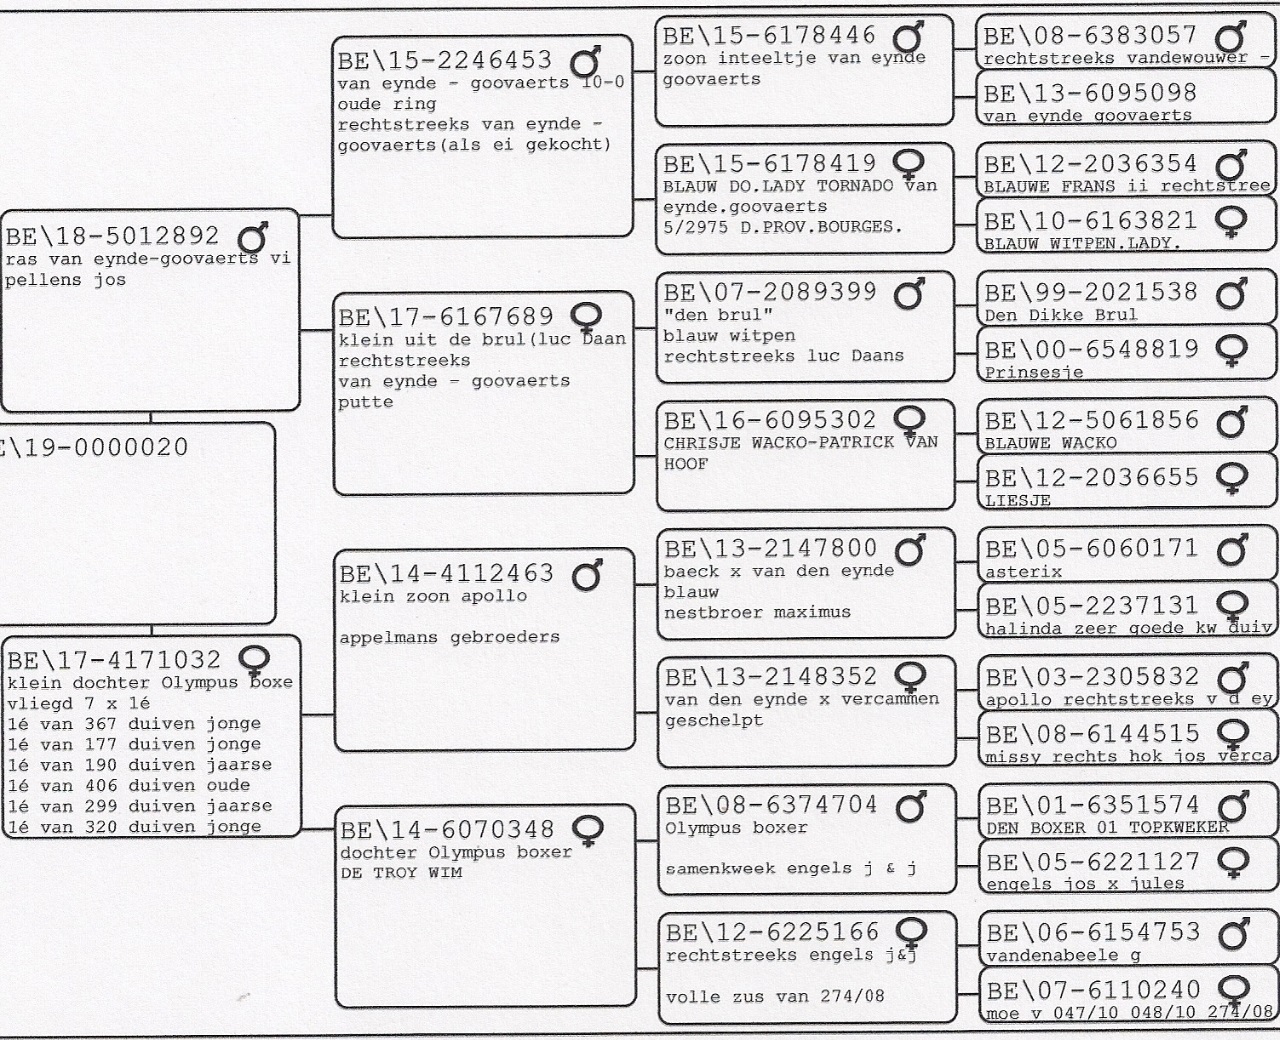 BE\18-5012892 ♂
ras van eynde-goovaerts vi
pellens jos
\19-0000020
BE\17-4171032 ♀
klein dochter Olympus boxe
vliegd 7 x 1é
1é van 367 duiven jonge
1é van 177 duiven jonge
1é van 190 duiven jaarse
1é van 406 duiven oude
1é van 299 duiven jaarse
1é van 320 duiven jonge
BE\15-2246453 ♂
van eynde - goovaerts 10-0
oude ring
rechtstreeks van eynde -
goovaerts(als ei gekocht)
BE\17-6167689 ♀
klein uit de brul(luc Daan
rechtstreeks
van eynde - goovaerts
putte
BE\14-4112463 ♂
klein zoon apollo
appelmans gebroeders
BE\14-6070348 ♀
dochter Olympus boxer
DE TROY WIM
BE\15-6178446 ♂
zoon inteeltje van eynde
goovaerts
BE\15-6178419 ♀
BLAUW DO.LADY TORNADO van
eynde.goovaerts
5/2975 D.PROV.BOURGES.
BE\07-2089399 ♂
"den brul"
blauw witpen
rechtstreeks luc Daans
BE\16-6095302 ♀
CHRISJE WACKO-PATRICK VAN
HOOF
BE\13-2147800 ♂
baeck x van den eynde
blauw
nestbroer maximus
BE\13-2148352 ♀
van den eynde x vercammen
geschelpt
BE\08-6374704 ♂
Olympus boxer
samenkweek engels j & j
BE\12-6225166 ♀
rechtstreeks engels j&j
volle zus van 274/08
BE\08-6383057 ♂
rechtstreeks vandewouwer -
BE\13-6095098
van eynde goovaerts
BE\12-2036354 ♂
BLAUWE FRANS ii rechtstree
BE\10-6163821 ♀
BLAUW WITPEN.LADY.
BE\99-2021538 ♂
Den Dikke Brul
BE\00-6548819 ♀
Prinsesje
BE\12-5061856 ♂
BLAUWE WACKO
BE\12-2036655 ♀
LIESJE
BE\05-6060171 ♂
asterix
BE\05-2237131 ♀
halinda zeer goede kw duiv
BE\03-2305832 ♂
apollo rechtstreeks v d ey
BE\08-6144515 ♀
missy rechts hok jos verca
BE\01-6351574 ♂
DEN BOXER 01 TOPKWEKER
BE\05-6221127 ♀
engels jos x jules
BE\06-6154753 ♂
vandenabeele g
BE\07-6110240 ♀
moe v 047/10 048/10 274/08